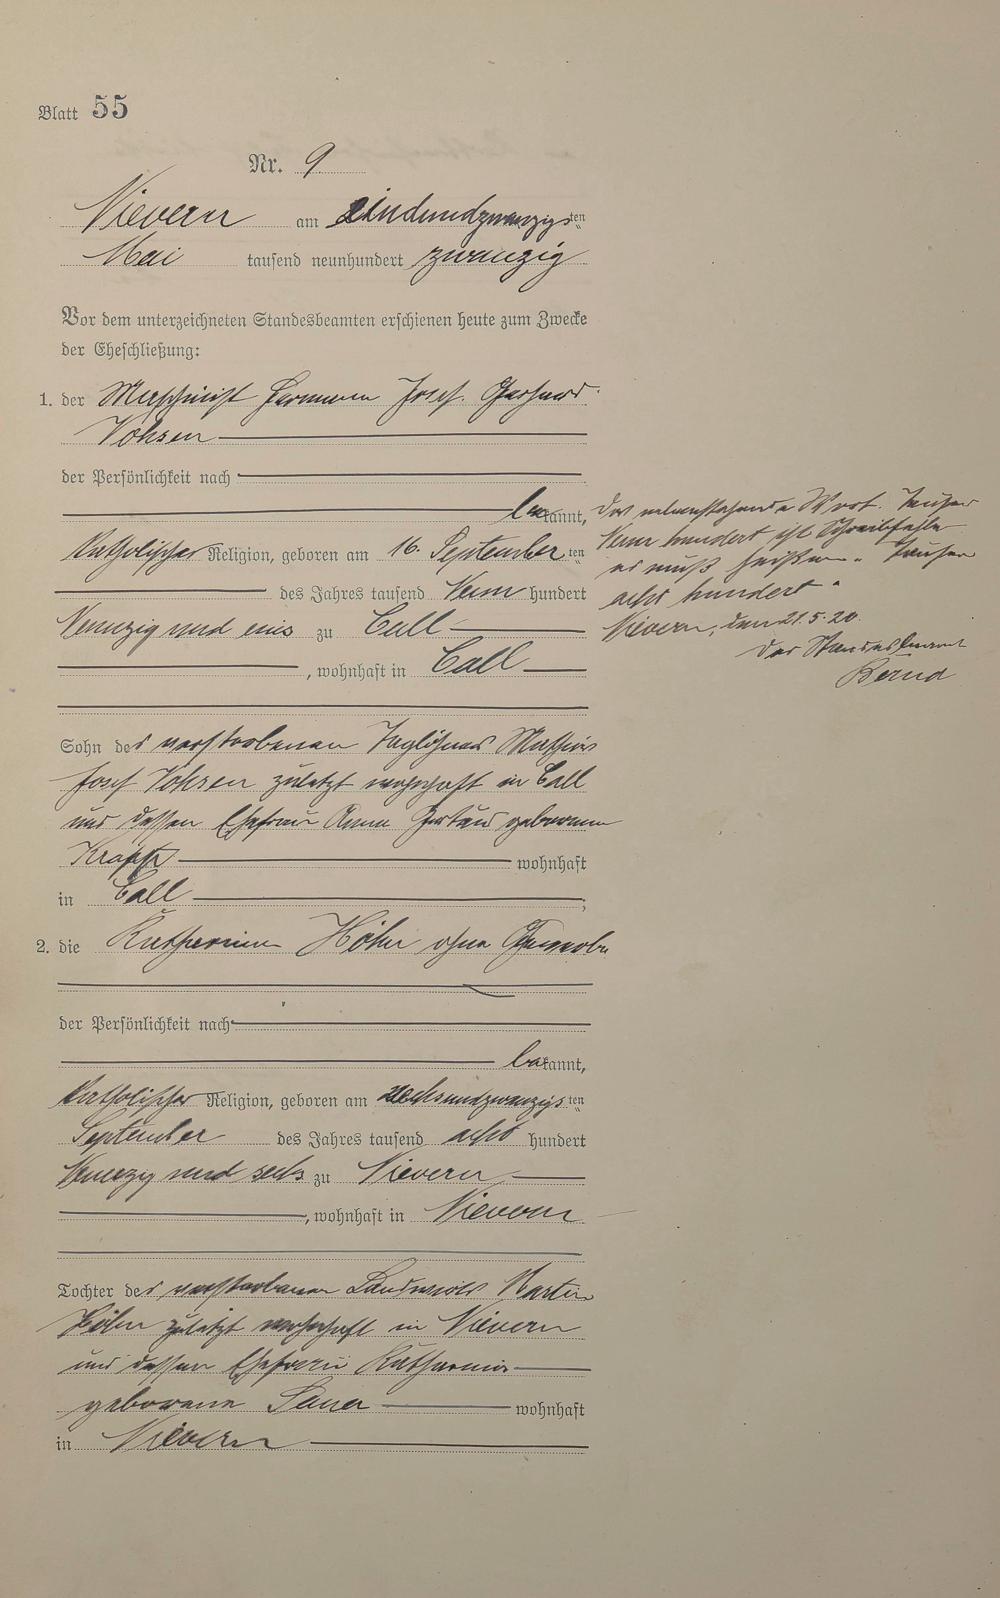 Blatt 55
Nr. 9
Nievern am einundzwanzigsten
Mai tausend neunhundert zwanzig
Vor dem unterzeichneten Standesbeamten erschienen heute zum Zwecke
der Eheschließung:
1. der Maschinist Hermann Josef Gerhard
Vohsen
der Persönlichkeit nach
bekannt,
katholischer Religion, geboren am 16. September ten
des Jahres tausend Neun hundert
Neunzig und eins zu Call
, wohnhaft in Call
Sohn des verstorbenen Taglöhners Mathias
Josef Vohsen zuletzt wohnhaft in Call
und dessen Ehefrau Anna Gertrud geborenen
wohnhaft
in Call ;
2. die Katharina Höhn ohne Gewerbe
der Persönlichkeit nach
bekannt,
katholischer Religion, geboren am sechsundzwanzigsten
September des Jahres tausend acht hundert
Neunzig und sechs zu Nievern
, wohnhaft in Nievern
Tochter des verstorbenen Landwirts Martin
Höhn zuletzt wohnhaft in Nievern
und dessen Ehefrau Katharina
geborene wohnhaft
in Nievern
Das nebenstehende Wort. Tausen
Neun hundert ist Schreibfehler
es muß heißen „Tausen
acht hundert"
Nievern, den 21.5.20.
Der Standesbeamt
Bernd